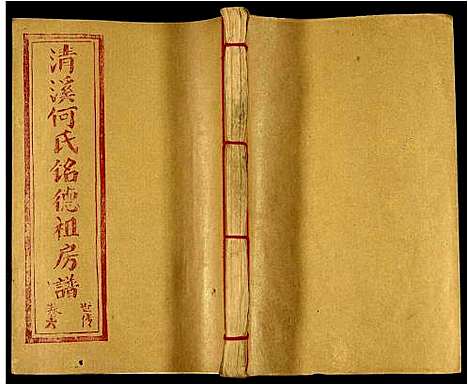 清溪何氏銘德祖房譜
世傳
卷六